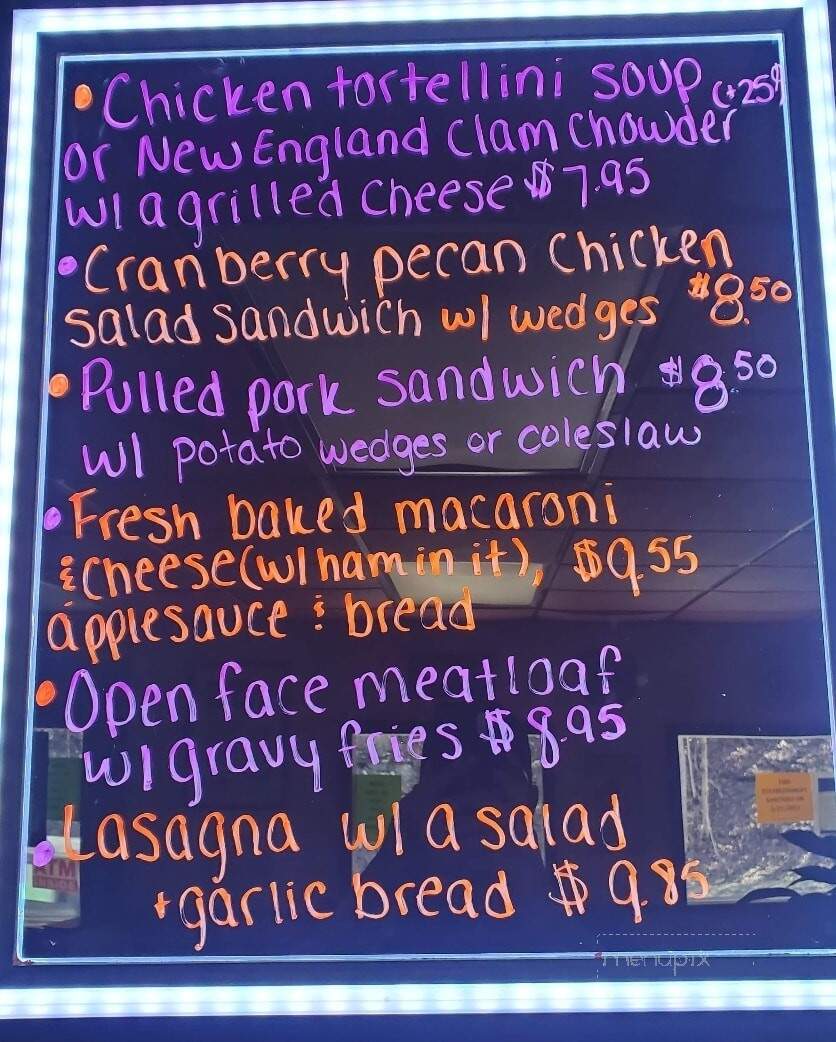 • Chicken tortellini soup (+25¢)
or New England Clam Chowder
w/ a grilled cheese $7.95
• Cranberry pecan chicken
salad sandwich w/ wedges $8.50
• Pulled pork sandwich $8.50
w/ potato wedges or coleslaw
• Fresh baked macaroni
& cheese (w/ ham in it), $9.55
applesauce & bread
• Open face meatloaf
w/ gravy fries $8.95
• Lasagna w/ a salad
+ garlic bread $9.85
ATM
menupix